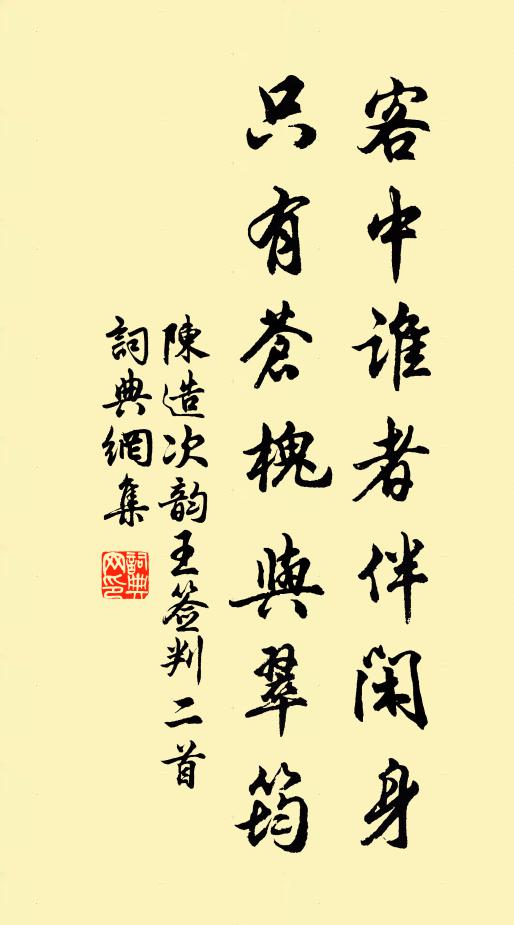 客中谁者伴闲身
只有苍槐與翠筠
陳造次韵王签判二首
詞典網集
詞典
网印